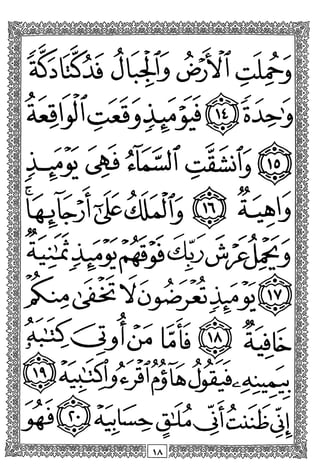 وَحُمِلَتِ ٱلْأَرْضُ وَٱلْجِبَالُ فَدُكَّتَا دَكَّةً
وَٰحِدَةً ١٤ فَيَوْمَئِذٍ وَقَعَتِ ٱلْوَاقِعَةُ
١٥ وَٱنشَقَّتِ ٱلسَّمَآءُ فَهِىَ يَوْمَئِذٍ
وَاهِيَةٌ ١٦ وَٱلْمَلَكُ عَلَىٰٓ أَرْجَآئِهَا ۚ
وَيَحْمِلُ عَرْشَ رَبِّكَ فَوْقَهُمْ يَوْمَئِذٍ ثَمَٰنِيَةٌ
١٧ يَوْمَئِذٍ تُعْرَضُونَ لَا تَخْفَىٰ مِنكُمْ
خَافِيَةٌ ١٨ فَأَمَّا مَنْ أُوتِىَ كِتَٰبَهُۥ
بِيَمِينِهِۦ فَيَقُولُ هَآؤُمُ ٱقْرَءُوا۟ كِتَٰبِيَهْ ١٩
إِنِّى ظَنَنتُ أَنِّى مُلَٰقٍ حِسَابِيَهْ ٢٠ فَهُوَ
١٨